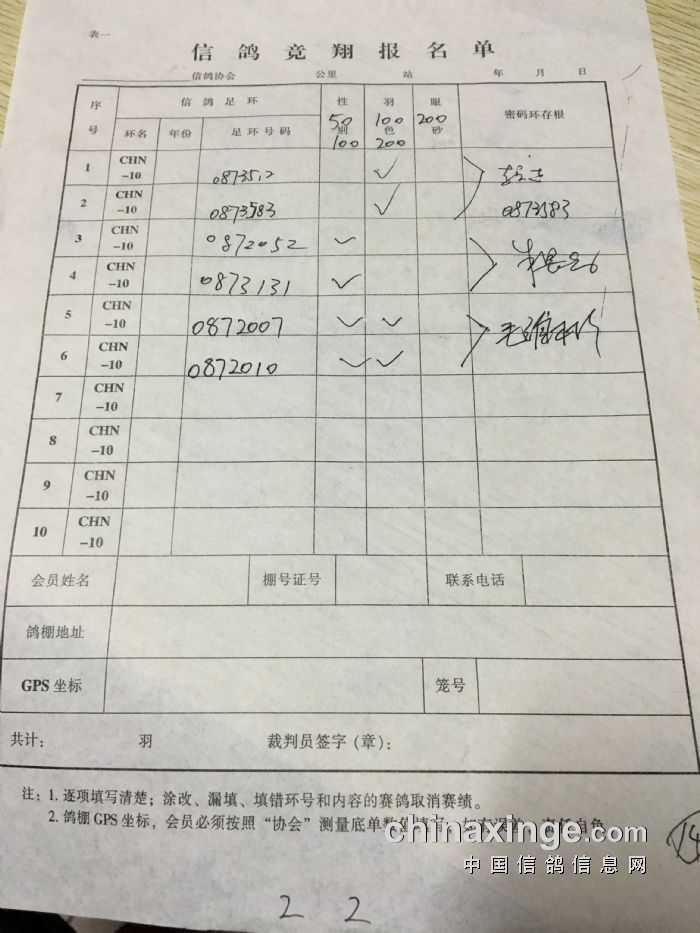 表一
信鸽竞翔报名单
信鸽协会 公里 站 年 月 日
序号 信鸽足环 性别 羽色 眼砂 密码环存根
50 100 200
100 200
环名 年份 足环号码
1 CHN-10 0873512 ✓
2 CHN-10 0873583 ✓ 0873583
3 CHN-10 0872052 ✓
4 CHN-10 0873131 ✓
5 CHN-10 0872007 ✓ ✓
6 CHN-10 0872010 ✓ ✓
7 CHN-10
8 CHN-10
9 CHN-10
10 CHN-10
会员姓名 棚号证号 联系电话
鸽棚地址
GPS 坐标 笼号
共计: 羽 裁判员签字(章):
注: 1. 逐项填写清楚; 涂改、漏填、填错环号和内容的赛鸽取消赛绩。
2. 鸽棚 GPS 坐标, 会员必须按照“协会”测量底单数值填写,
chinaxinge.com
中国信鸽信息网
14
2 2